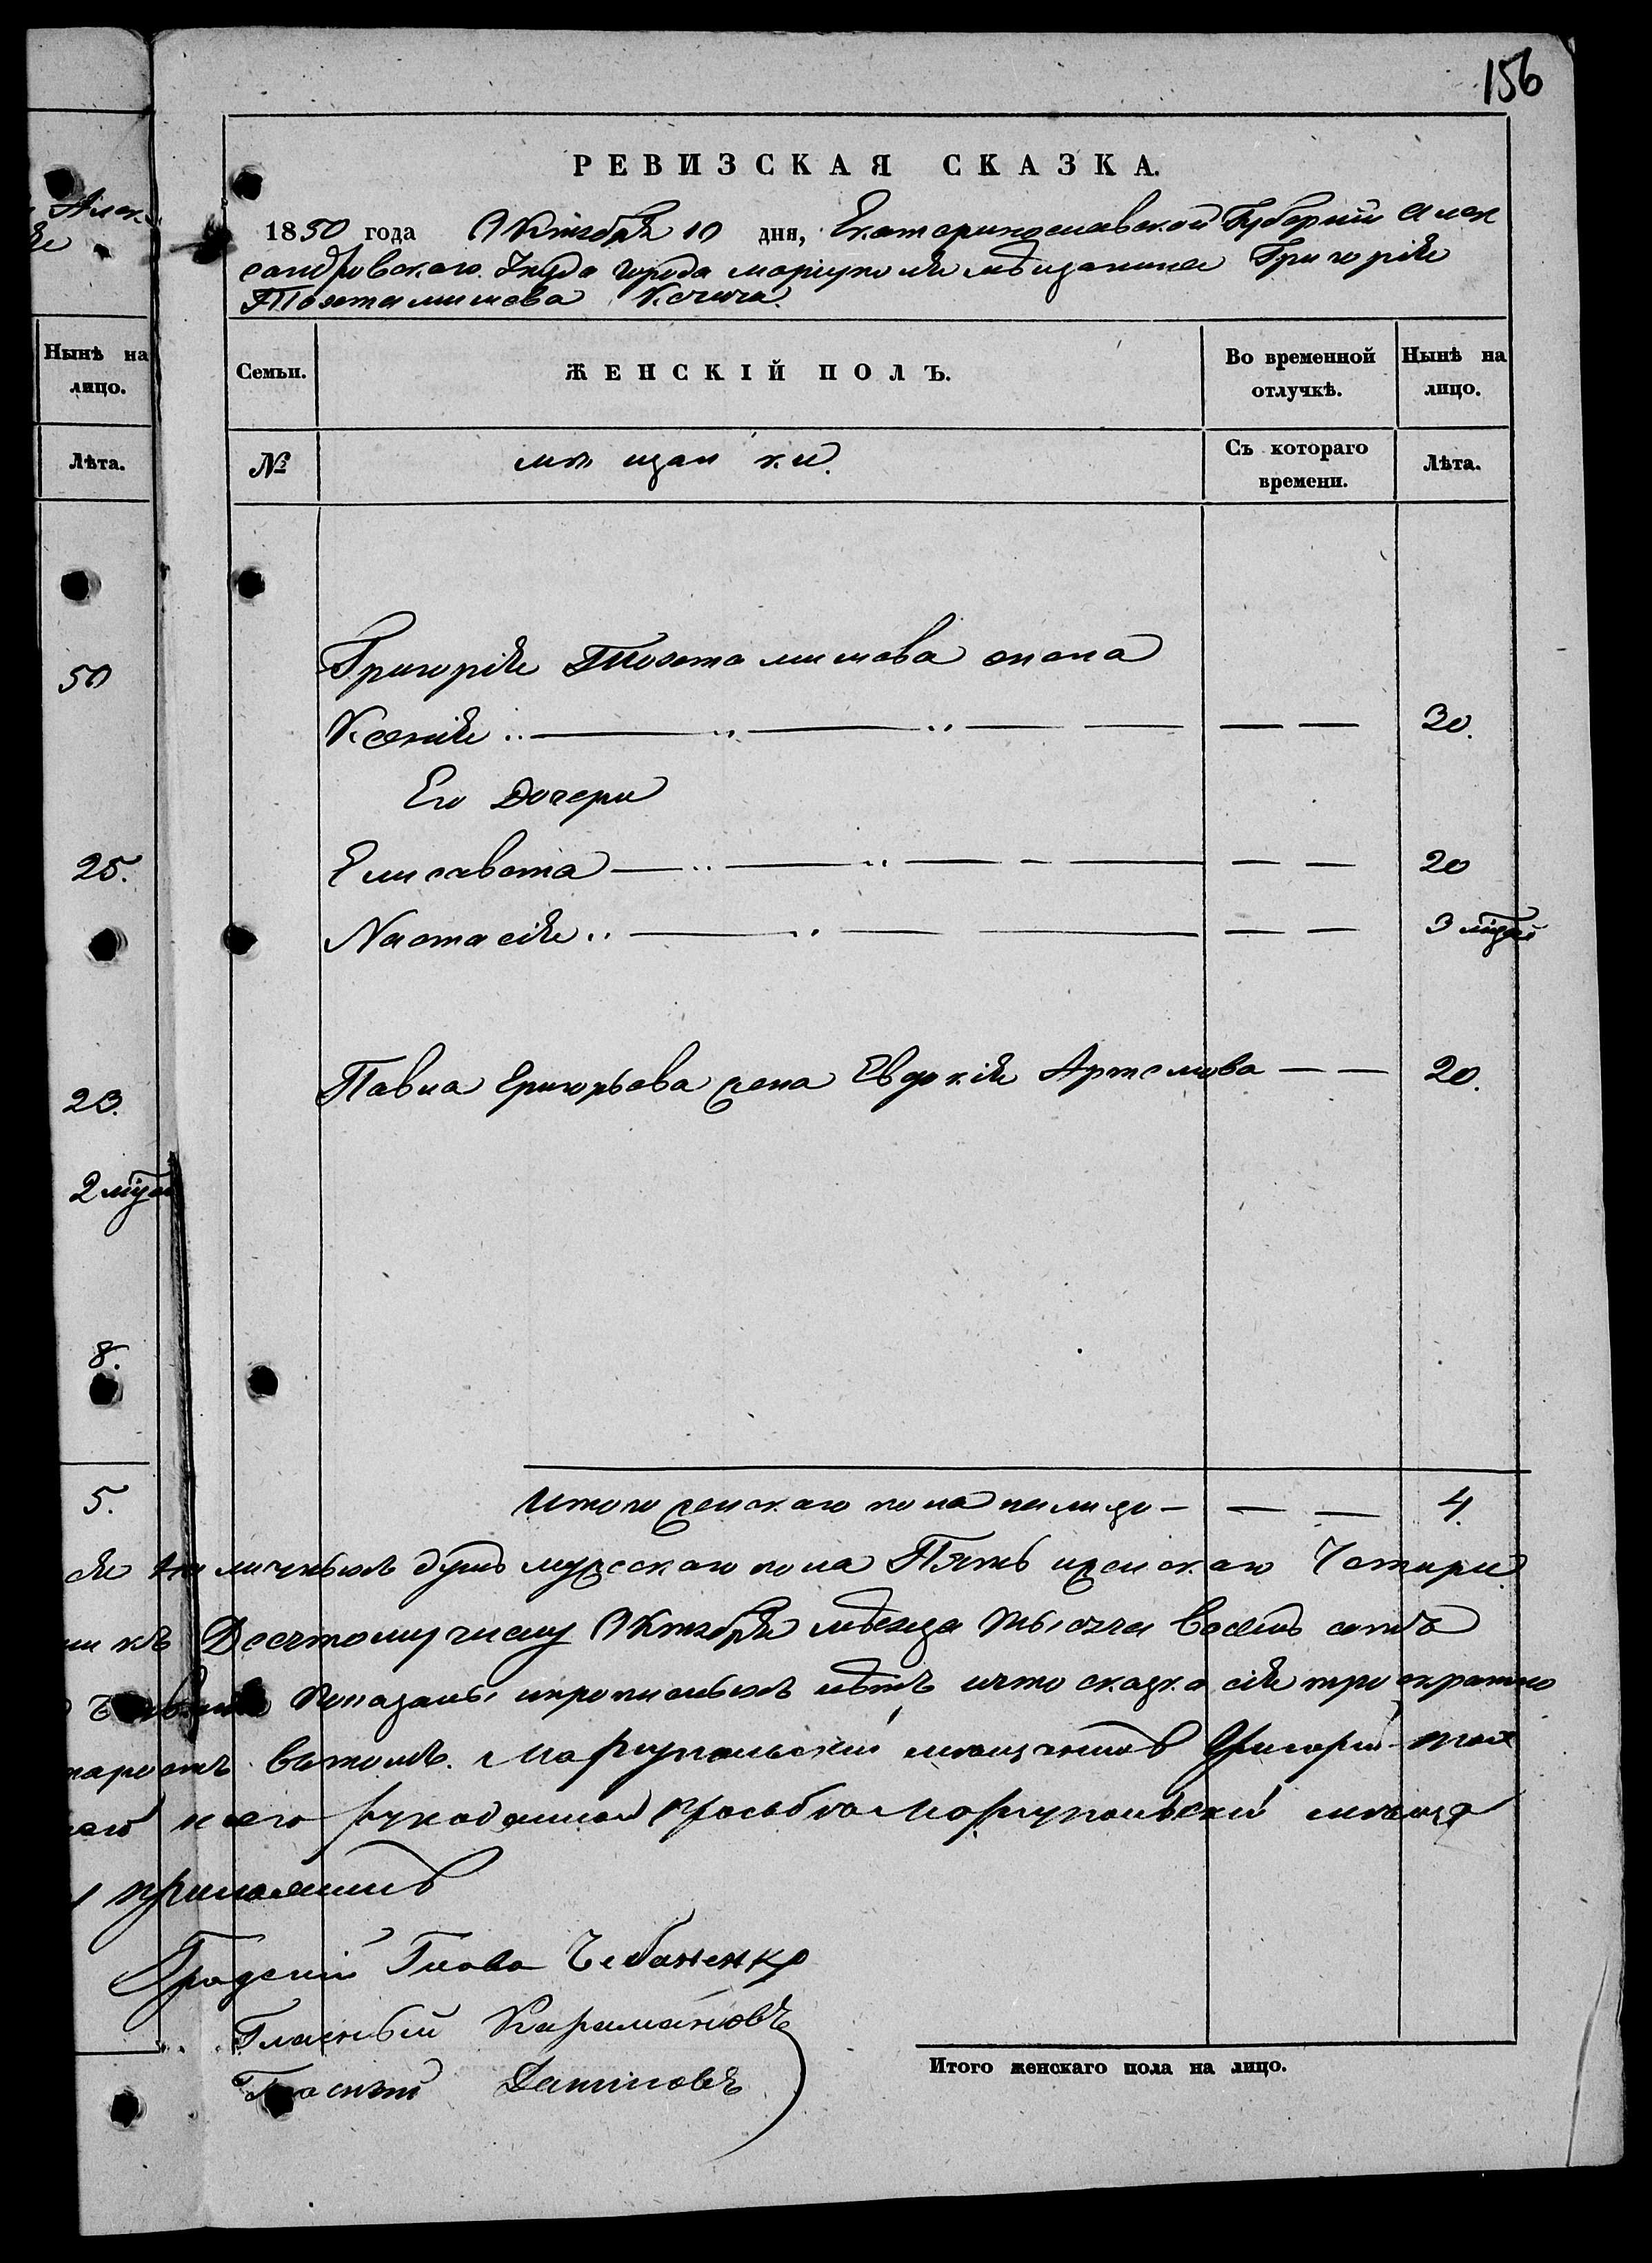 156
РЕВИЗСКАЯ СКАЗКА.
1850 года Октября 10 дня, Екатеринославской Губерніи Алек
сандровскаго уезда города маріуполя мѣщанина Григорія
Кочича.
Алек
Нынѣ на
лицо.
Лѣта.
Семьи.
ЖЕНСКІЙ ПОЛЪ.
Во временной
отлучкѣ.
Нынѣ на
лицо.
№
мѣщанки.
Съ котораго
времени.
Лѣта.
50
Григорія жена
Ксенія 30.
Его Дочери
25.
Елисавета 20
Настасія 3
23.
Павла Григорьева жена Евдокія Артемова 20.
2
8.
5.
Итого женскаго пола на лицо 4
наличныхъ душъ мужескаго пола Пять женскаго Четыри
къ Десятому числу Октября мѣсяца тысяча восемь сотъ
показаны ипрописныхъ нѣтъ ичто сказка сія
вътомъ. Маріупольскій мещанинъ Григорій
его рукоданной просьбѣ Маріупольскій
приложилъ
Градскій Глова Чебаненко
Гласный Карамановъ
Гласный Даниловъ
Итого женскаго пола на лицо.